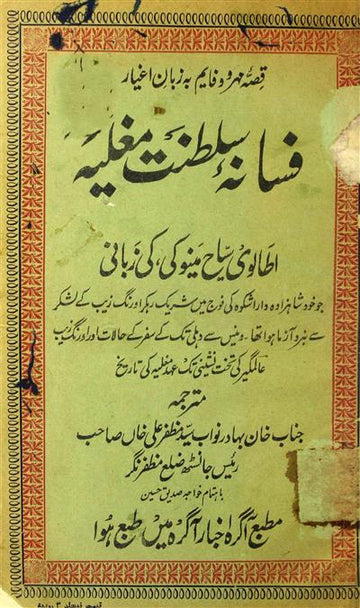 قصۂ مہر و وفایم بہ زبانِ اغیار
فسانۂ سلطنت مغلیہ
اطالوی سیاح مینوکی، کی زبانی
جو خود شاہزادہ دارا شکوہ کی فوج میں شریک رہکر اورنگ زیب کے لشکر
سے نبرد آزما ہوا تھا ۔ وینس سے دہلی تک کے سفر کے حالات اور اورنگ زیب
عالمگیر کی تخت نشینی تک عہد مغلیہ کی تاریخ
مترجمہ
جناب خان بہادر نواب سید مظفر علی خاں صاحب
رئیس جانسٹھ ضلع مظفر نگر
باہتمام خواجہ صدیق حسین
مطبع آگرہ اخبار آگرہ میں طبع ہوا